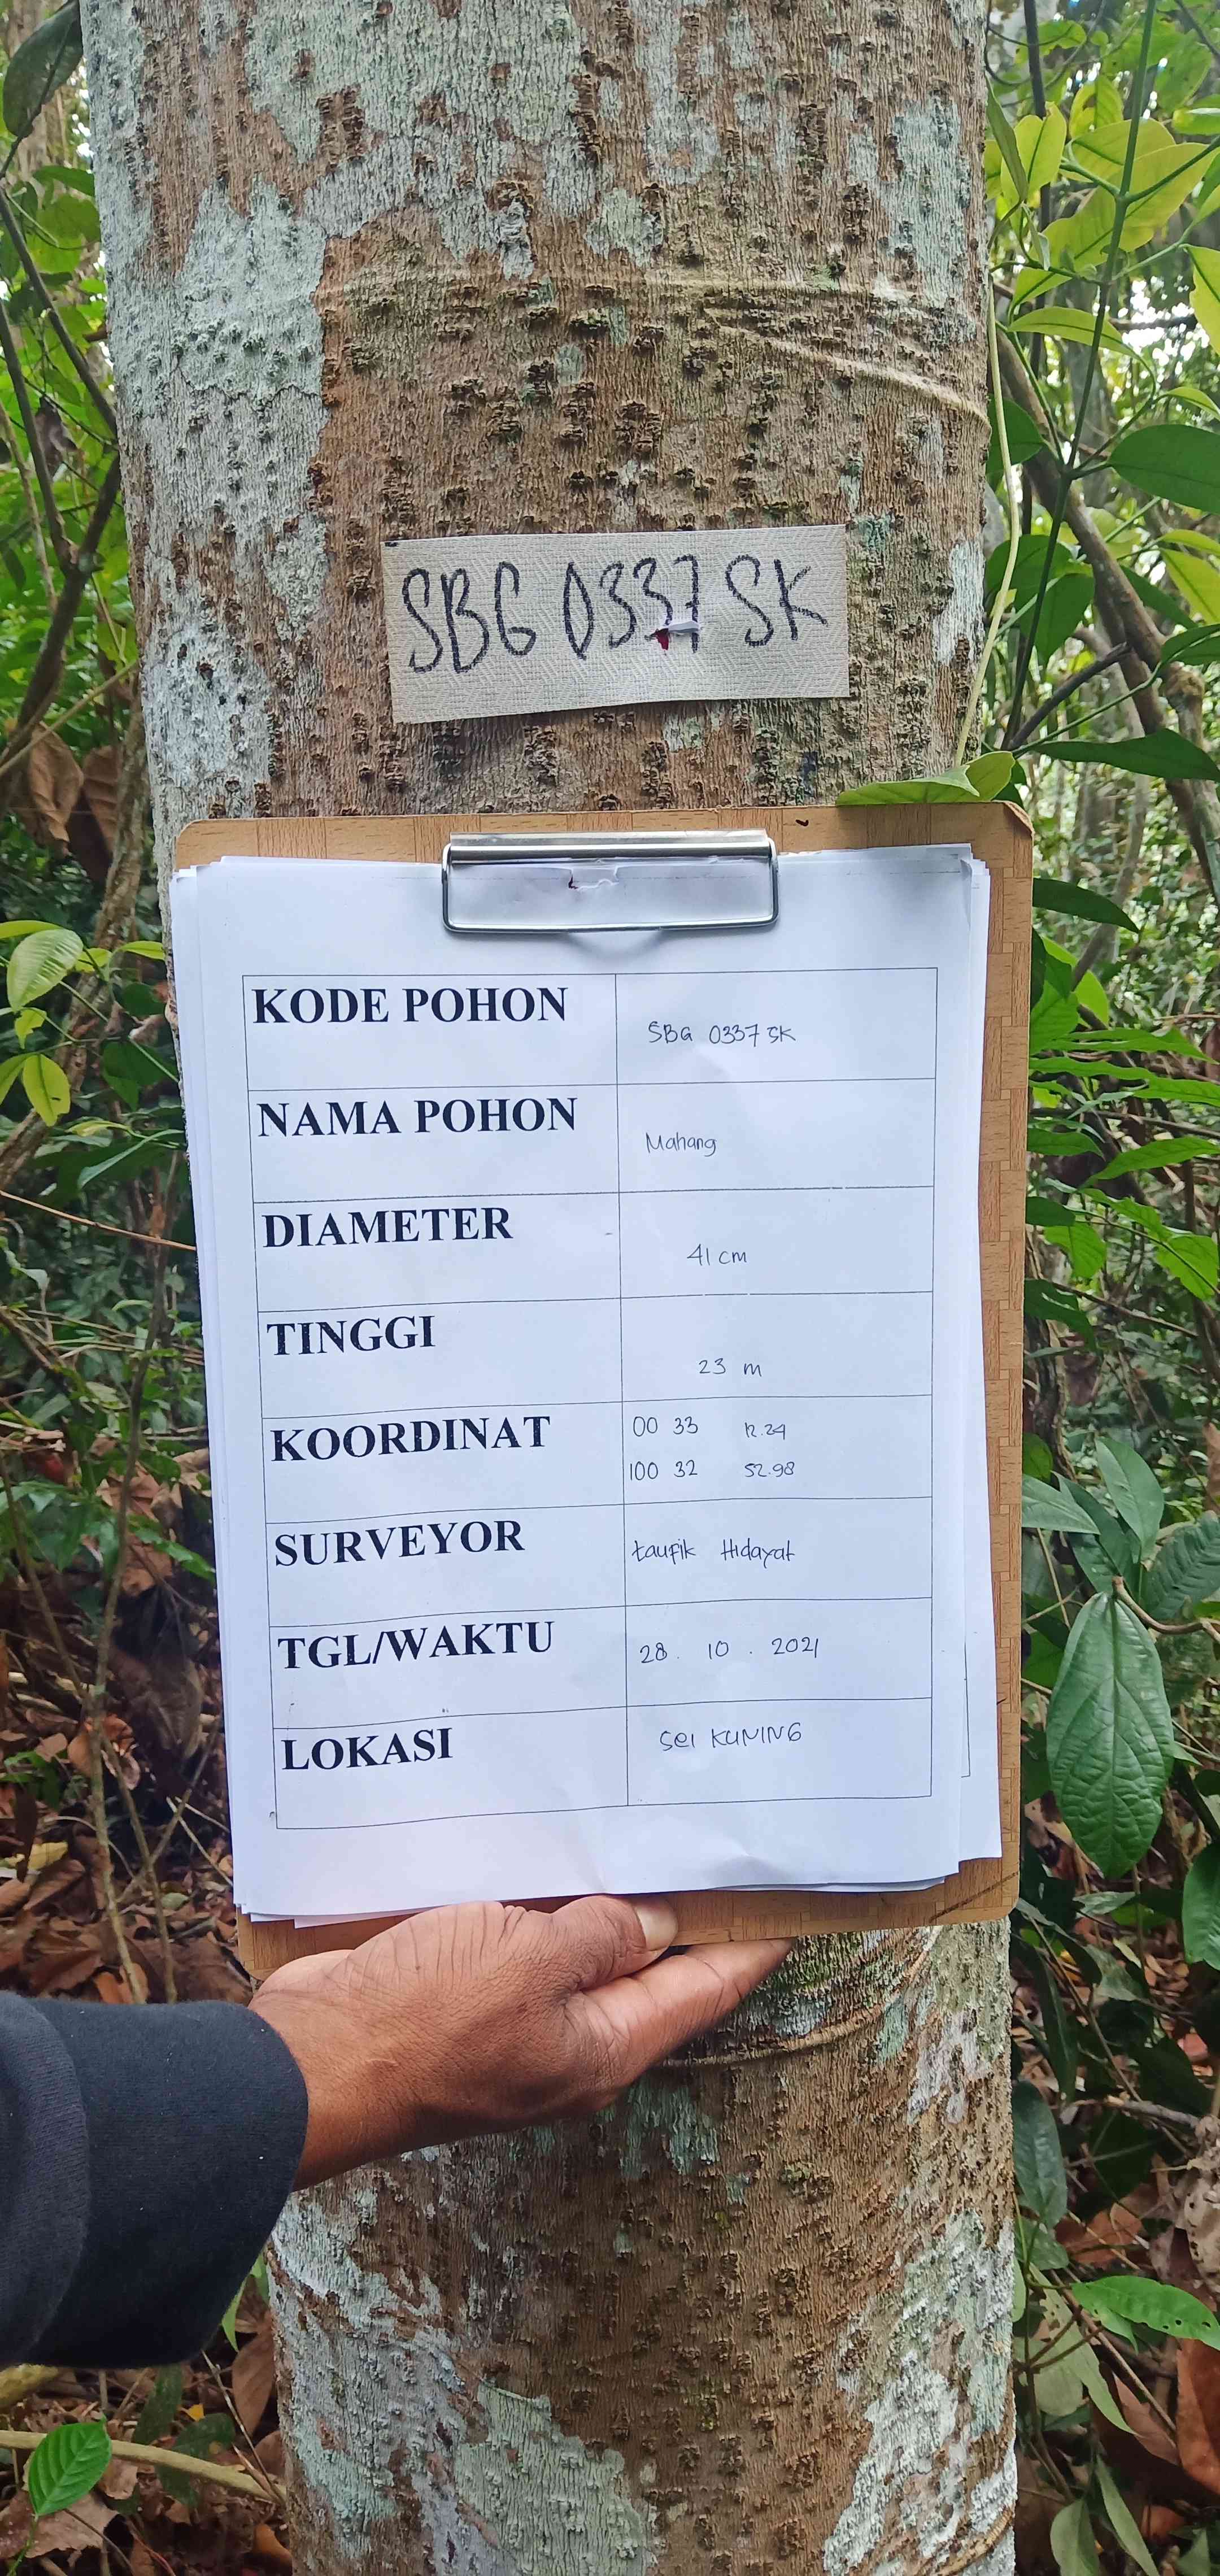 SBG 0337 SK
KODE POHON
SBG 0337 SK
NAMA POHON
Mahang
DIAMETER
41 cm
TINGGI
23 m
KOORDINAT
00 33 12.29
100 32 52.98
SURVEYOR
taufik Hidayat
TGL/WAKTU
28 . 10 . 2021
LOKASI
Sei KUNING